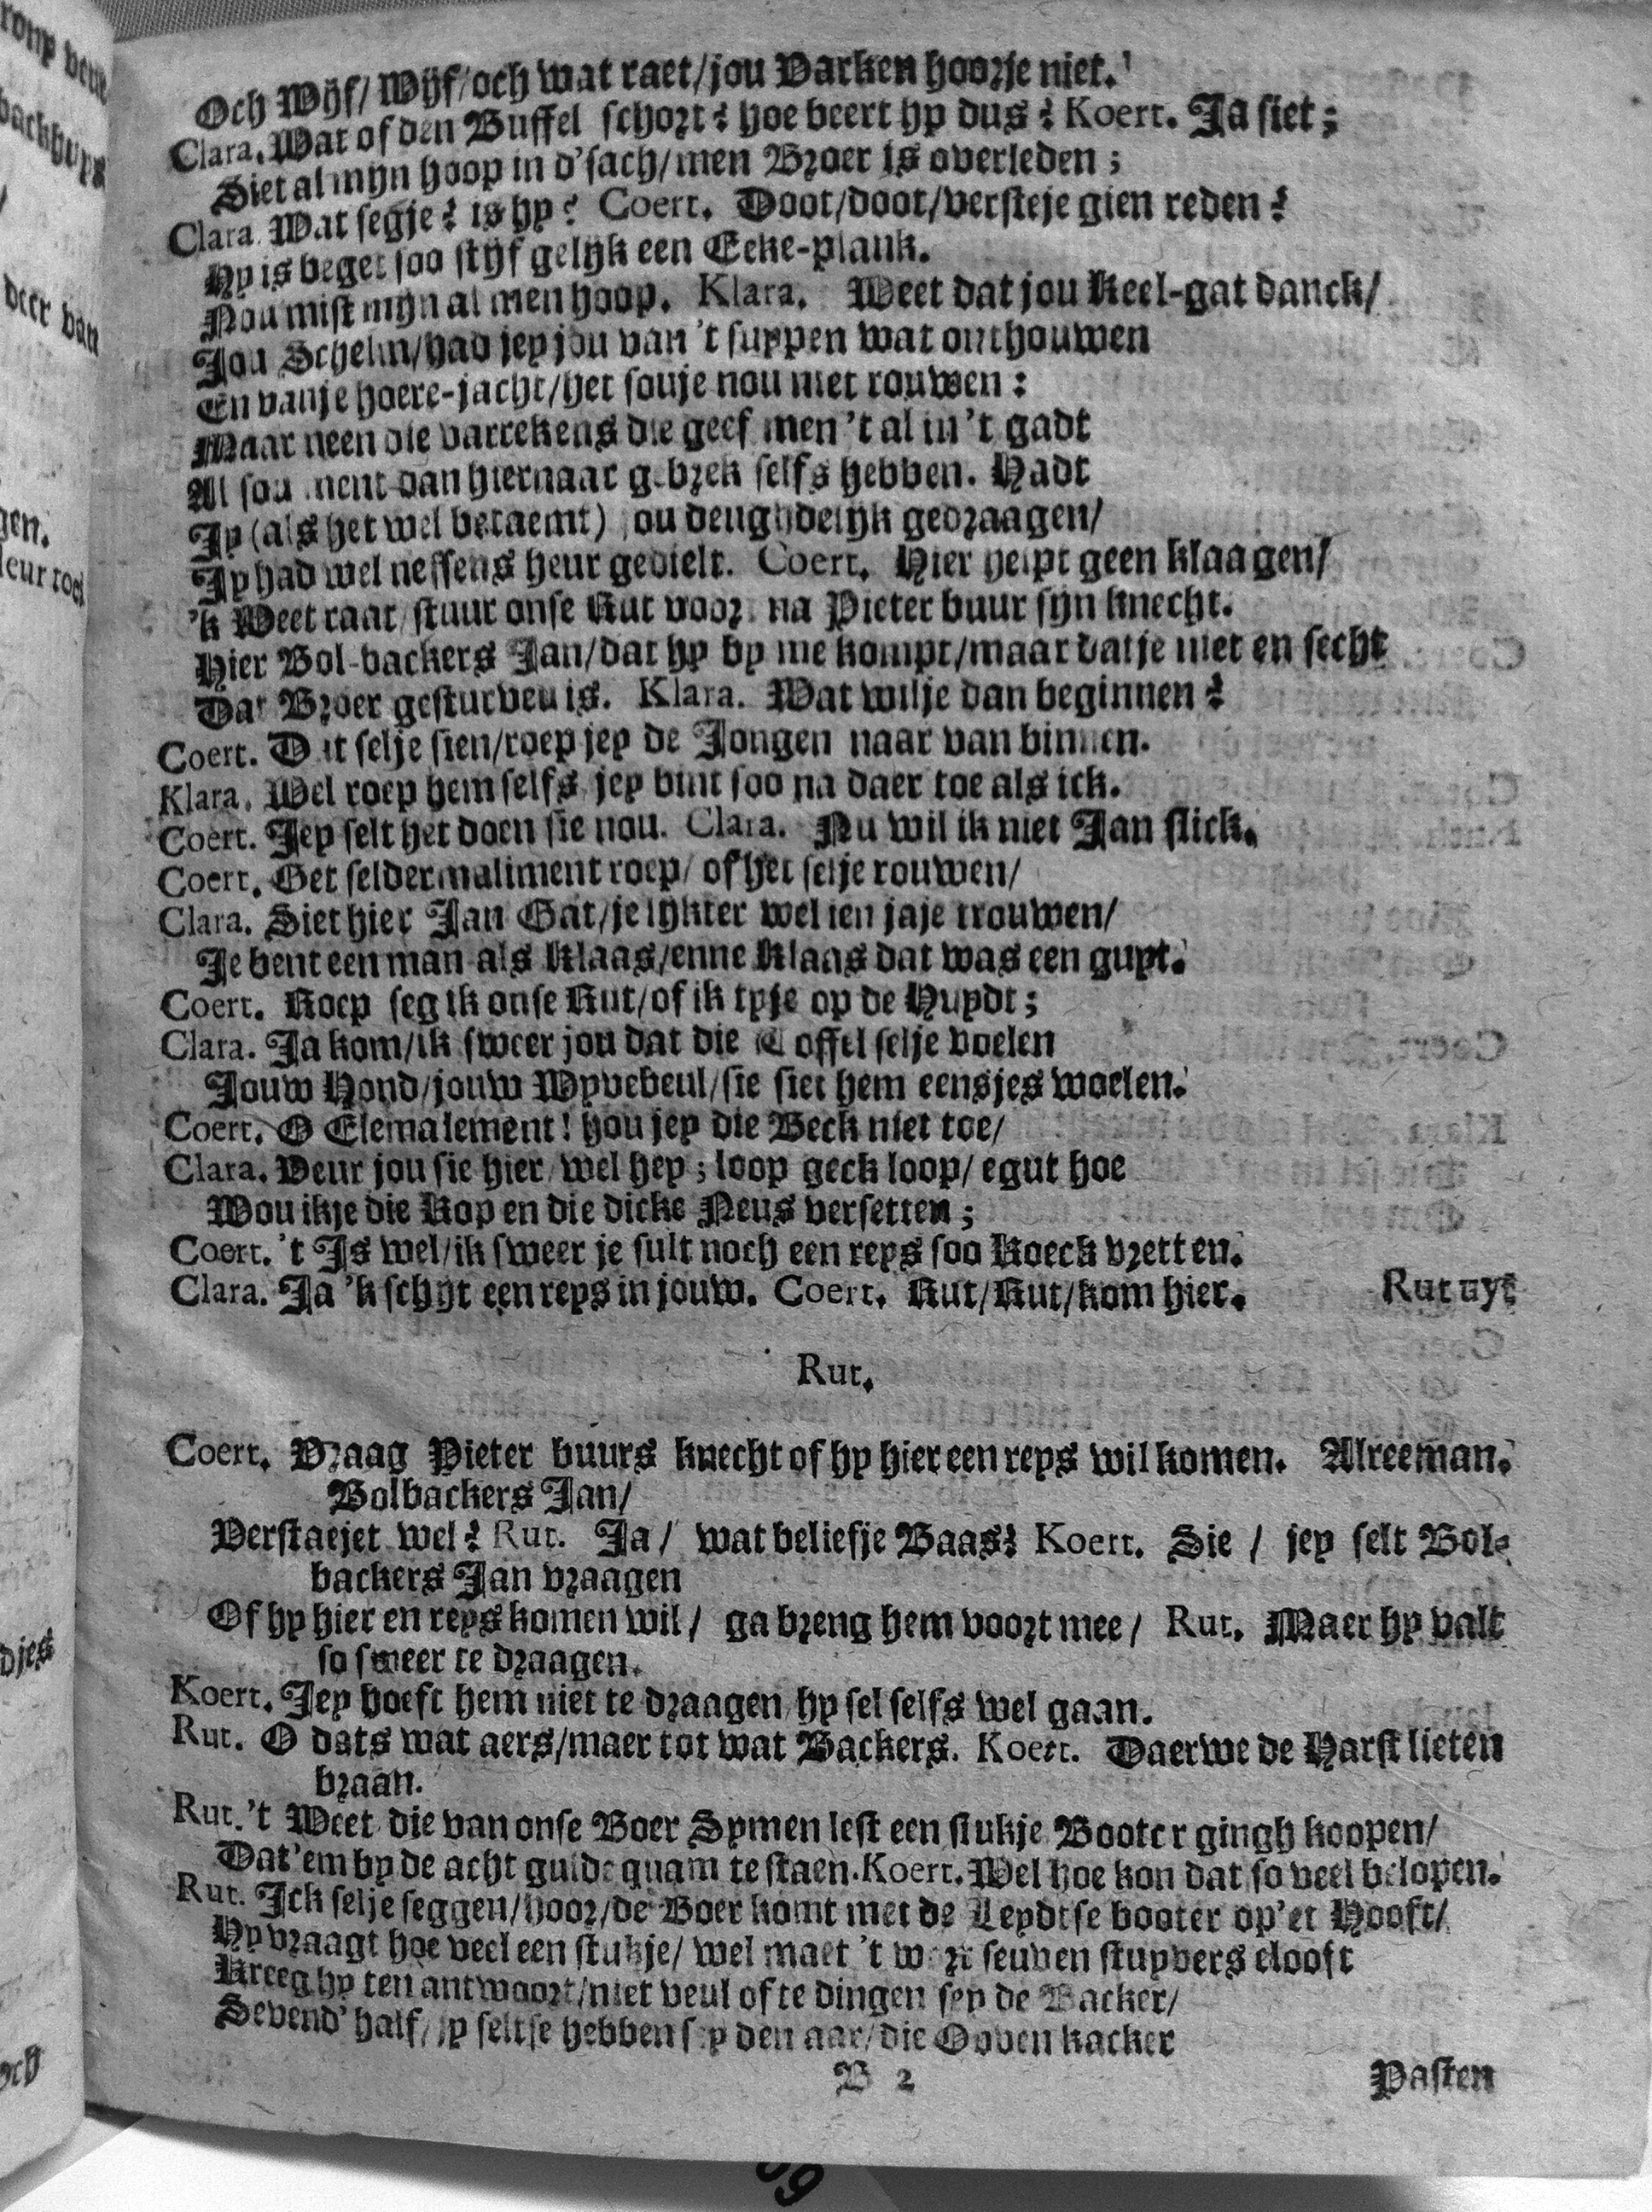 Och Wijf/ Wijf/och wat raet/jou Varken hoorje niet.
Clara. Wat of den Buffel schort? hoe beert hy dus? Koert. Ja siet;
Siet al mijn hoop in d'sach/men Broer is overleden;
Clara. Wat segje? is hy? Coert. Doot/doot/versteje gien reden?
Hy is beget soo stijf gelijk een Eeke-plank.
Nou mist mijn al men hoop. Klara. Weet dat jou Keel-gat danck/
Jou Schelm/had jey jou van 't suypen wat onthouwen
En vanje hoere-jacht/het souje nou niet rouwen:
Maar neen die varrekens die geef men 't al in 't gadt
Al sou ment dan hiernaar gebrek selfs hebben. Hadt
Jy (als het wel betaemt) jou deughdelijk gedraagen/
Jy had wel neffens heur gedielt. Coert. Hier helpt geen klaagen/
'k Weet raat/stuur onse Rut voor na Pieter buur sijn knecht.
Hier Bol-backers Jan/dat hy by me kompt/maar datje niet en secht
Dat Broer gesturven is. Klara. Wat wilje dan beginnen?
Coert. Dat selje sien/roep jey de Jongen naar van binnen.
Klara. Wel roep hem selfs jey bint soo na daer toe als ick.
Coert. Jey selt het doen sie nou. Clara. Nu wil ik niet Jan slick.
Coert. Get seldermaliment roep/ of het selje rouwen/
Clara. Siet hier Jan Gat/je lijkter wel ien jaje trouwen/
Je bent een man als Klaas/enne Klaas dat was een guyt.
Coert. Roep seg ik onse Rut/of ik tyje op de Huydt;
Clara. Ja kom/ik sweer jou dat die Toffel selje voelen
Jouw Hond/jouw Wyvebeul/sie siet hem eensjes woelen.
Coert. O Elemalement! hou jey die Beck niet toe/
Clara. Veur jou sie hier wel hey; loop geck loop/ egut hoe
Wou ikje die Kop en die dicke Neus versetten;
Coert. 't Is wel/ik sweer je sult noch een reys soo Koeck vretten.
Clara. Ja 'k schijt een reys in jouw. Coert. Rut/Rut/kom hier. Rut uyt
Rut.
Coert. Vraag Pieter buurs knecht of hy hier een reys wil komen. Alreeman.
Bolbackers Jan/
Verstaejet wel? Rut. Ja/ wat beliefje Baas? Koert. Sie / jey selt Bol-
backers Jan vraagen
Of hy hier en reys komen wil/ ga breng hem voort mee/ Rut. Maer hy valt
so sweer te draagen.
Koert. Jey hoeft hem niet te draagen hy sel selfs wel gaan.
Rut. O dats wat aers/maer tot wat Backers. Koert. Daerwe de Harst lieten
braan.
Rut. 't Weet die van onse Boer Symen lest een stukje Booter gingh koopen/
Dat'em by de acht gulde quam te staen. Koert. Wel hoe kon dat so veel belopen.
Rut. Ick selje seggen/hoor/de Boer komt met de Leydtse booter op'et Hooft/
Hy vraagt hoe veel een stukje/ wel maet 't wort seuven stuyvers elooft
Kreeg hy ten antwoort/niet veul of te dingen sey de Backer/
Sevend' half/jy seltse hebben sey den aar/die Ooven kacker
B 2 Pasten